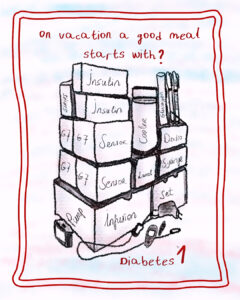 on vacation a good meal
starts with?
Insulin
Insulin
Cooler
G7 G7 Sensor
G7 G7 Sensor
Pump
Infusion
Set
Diabetes 1